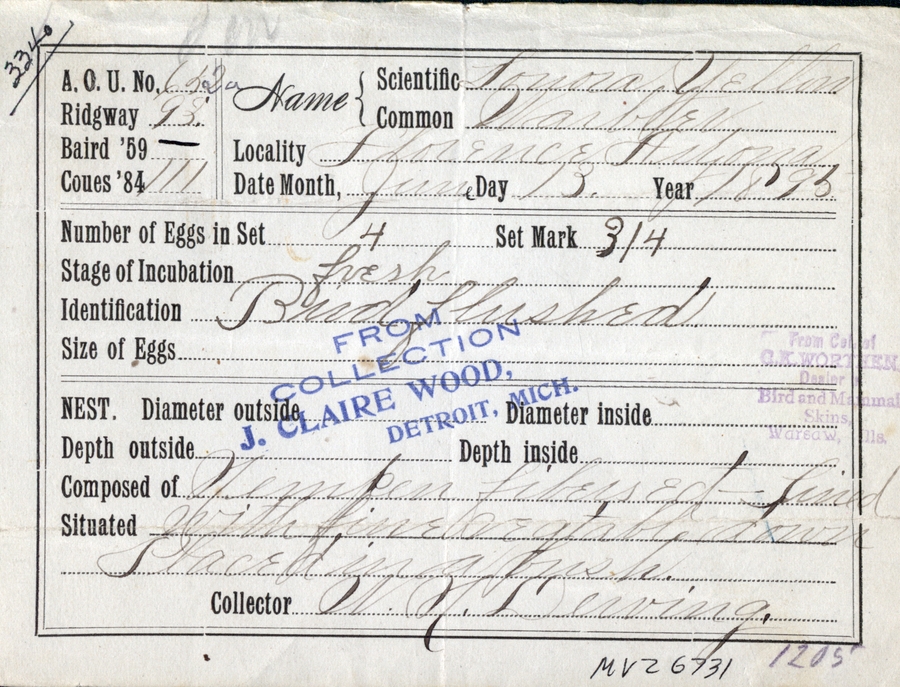 3340
A.O.U. No. 652a
Name { Scientific Sonora Yellow
Ridgway 93.
Common Warbler
Baird '59 —
Locality Florence Arizona
Coues '84 111
Date Month, June Day 13. Year 1895
Number of Eggs in Set 4 Set Mark 3/4
Stage of Incubation fresh
Identification Bird flushed
Size of Eggs
FROM
COLLECTION
J. CLAIRE WOOD,
DETROIT, MICH.
From Col. of
G.K. WORTHEN,
Dealer in
Bird and Mammal
Skins,
Warsaw, Ills.
NEST. Diameter outside Diameter inside
Depth outside Depth inside
Composed of Hempen fibers - Lined
Situated With fine vegetable down
Placed in a bush.
Collector W. H.
MVZ 6731
1205